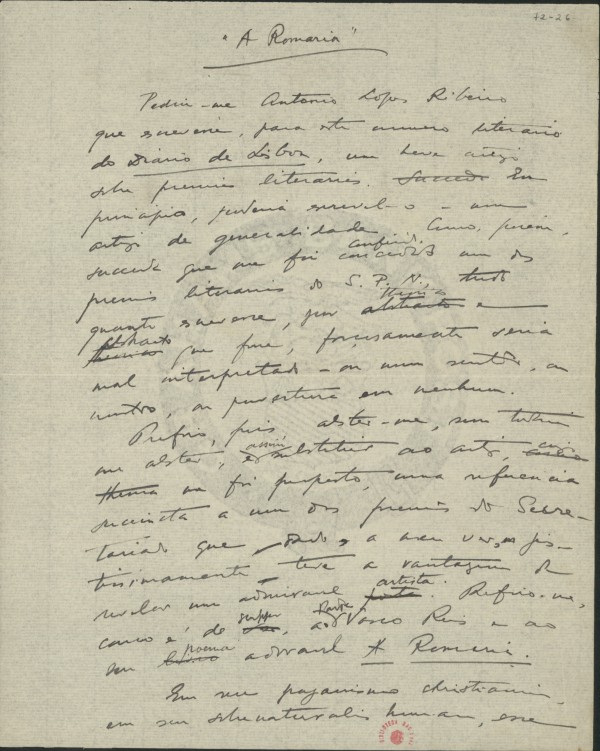 72-26
"A Romaria"
Pediu-me Antonio Lopes Ribeiro
que escrevesse, para este numero literario
do Diario de Lisboa, um breve artigo
sobre premios literarios. Succede Em
principio, poderia escrevel-o - um
artigo de generalidade. Como, porém,
conferido
succeda que me foi concedido um dos
premios literarios do S. P. N., tudo
theorico
quanto escrevesse, por abstracto e
abstracto
theorico que fosse, forçosamente seria
mal interpretado - ou num sentido, ou
noutro, ou porventura em nenhum.
Prefiro, pois abster-me, sem todavia
assim
me abster, e substituir ao artigo, cujo
thema me foi proposto, uma referencia
succinta a um dos premios do Secre-
tariado que, dado, a meu ver, jus-
tissimamente teve a vantagem de
artista
revelar um admiravel poeta. Refiro-me,
suppor Padre
como é de, ao Vasco Reis e ao
poema
seu livro adoravel A Romaria.
Em seu paganismo christianissimo,
em seu sobrenatural humano, esse